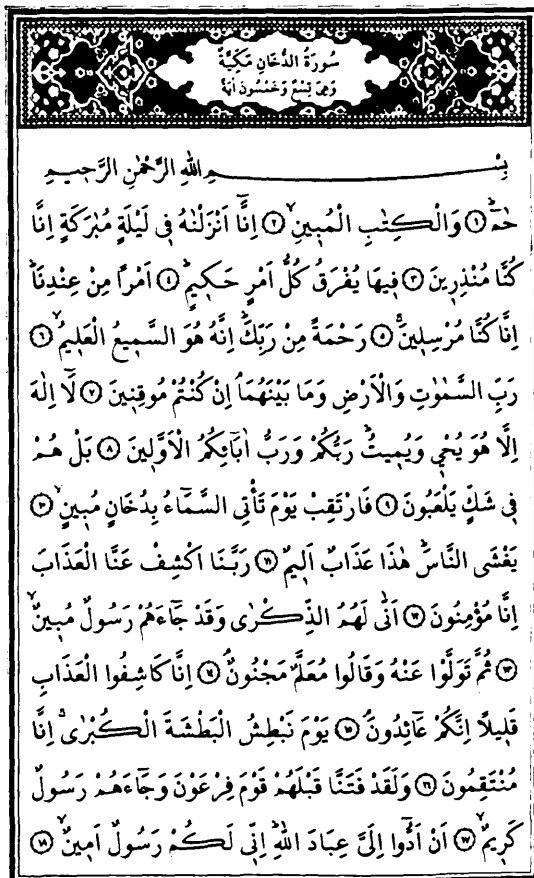 سُورَةُ الدُّخَانِ مَكِّيَّةٌ
وَهِيَ تِسْعٌ وَخَمْسُونَ اٰيَةً
بِسْمِ اللّٰهِ الرَّحْمٰنِ الرَّحِيمِ
حٰمٓ ۛ ﴿١﴾ وَالْكِتَابِ الْمُبِينِ ۙ ﴿٢﴾ اِنَّٓا اَنْزَلْنَاهُ فِى لَيْلَةٍ مُبٰرَكَةٍ اِنَّا
كُنَّا مُنْذِرِينَ ﴿٣﴾ فِيهَا يُفْرَقُ كُلُّ اَمْرٍ حَكِيمٍ ۙ ﴿٤﴾ اَمْرًا مِنْ عِنْدِنَا ۜ
اِنَّا كُنَّا مُرْسِلِينَ ۚ ﴿٥﴾ رَحْمَةً مِنْ رَبِّكَ ۜ اِنَّهُ هُوَ السَّمِيعُ الْعَلِيمُ ۙ ﴿٦﴾
رَبِّ السَّمٰوٰتِ وَالْاَرْضِ وَمَا بَيْنَهُمَا ۢ اِنْ كُنْتُمْ مُوقِنِينَ ﴿٧﴾ لَٓا اِلٰهَ
اِلَّا هُوَ يُحْيِي وَيُمِيتُ ۜ رَبُّكُمْ وَرَبُّ اٰبَٓائِكُمُ الْاَوَّلِينَ ﴿٨﴾ بَلْ هُمْ
فِى شَكٍّ يَلْعَبُونَ ﴿٩﴾ فَارْتَقِبْ يَوْمَ تَأْتِى السَّمَٓاءُ بِدُخَانٍ مُبِينٍ ۙ ﴿١٠﴾
يَغْشَى النَّاسَ ۜ هٰذَا عَذَابٌ اَلِيمٌ ﴿١١﴾ رَبَّنَا اكْشِفْ عَنَّا الْعَذَابَ
اِنَّا مُؤْمِنُونَ ﴿١٢﴾ اَنّٰى لَهُمُ الذِّكْرٰى وَقَدْ جَٓاءَهُمْ رَسُولٌ مُبِينٌ ۙ
﴿١٣﴾ ثُمَّ تَوَلَّوْا عَنْهُ وَقَالُوا مُعَلَّمٌ مَجْنُونٌ ۢ ﴿١٤﴾ اِنَّا كَاشِفُوا الْعَذَابِ
قَلِيلًا اِنَّكُمْ عَٓائِدُونَ ۢ ﴿١٥﴾ يَوْمَ نَبْطِشُ الْبَطْشَةَ الْكُبْرٰى ۚ اِنَّا
مُنْتَقِمُونَ ﴿١٦﴾ وَلَقَدْ فَتَنَّا قَبْلَهُمْ قَوْمَ فِرْعَوْنَ وَجَٓاءَهُمْ رَسُولٌ
كَرِيمٌ ۙ ﴿١٧﴾ اَنْ اَدُّٓوا اِلَيَّ عِبَادَ اللّٰهِ ۜ اِنِّى لَكُمْ رَسُولٌ اَمِينٌ ۙ ﴿١٨﴾